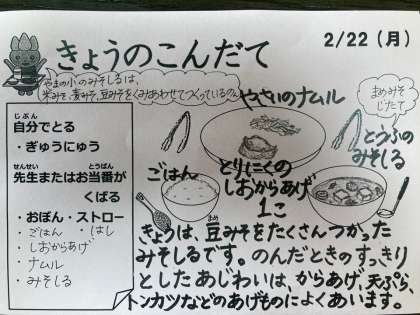 きょうのこんだて
2/22（月）
やまの小のみそしるは、
米みそ、麦みそ、豆みそをくみあわせてつくっているのん
自分でとる
じぶん
・ぎゅうにゅう
先生またはお当番が
せんせい
とうばん
くばる
・おぼん・ストロー
・ごはん ・はし
・しおからあげ
・ナムル
・みそしる
やさいのナムル
まめみそ
じたて
とうふの
みそしる
ごはん
とりにくの
しおからあげ
1こ
きょうは、豆みそをたくさんつかった
まめ
みそしるです。のんだときのすっきり
としたあじわいは、からあげ、天ぷら、
トンカツなどのあげものによくあいます。